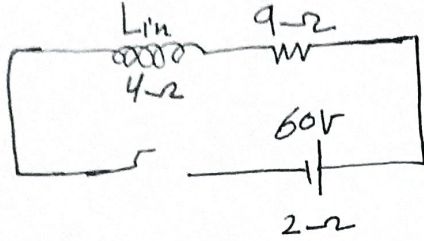 Lin 9Ω
4Ω
60V
2Ω